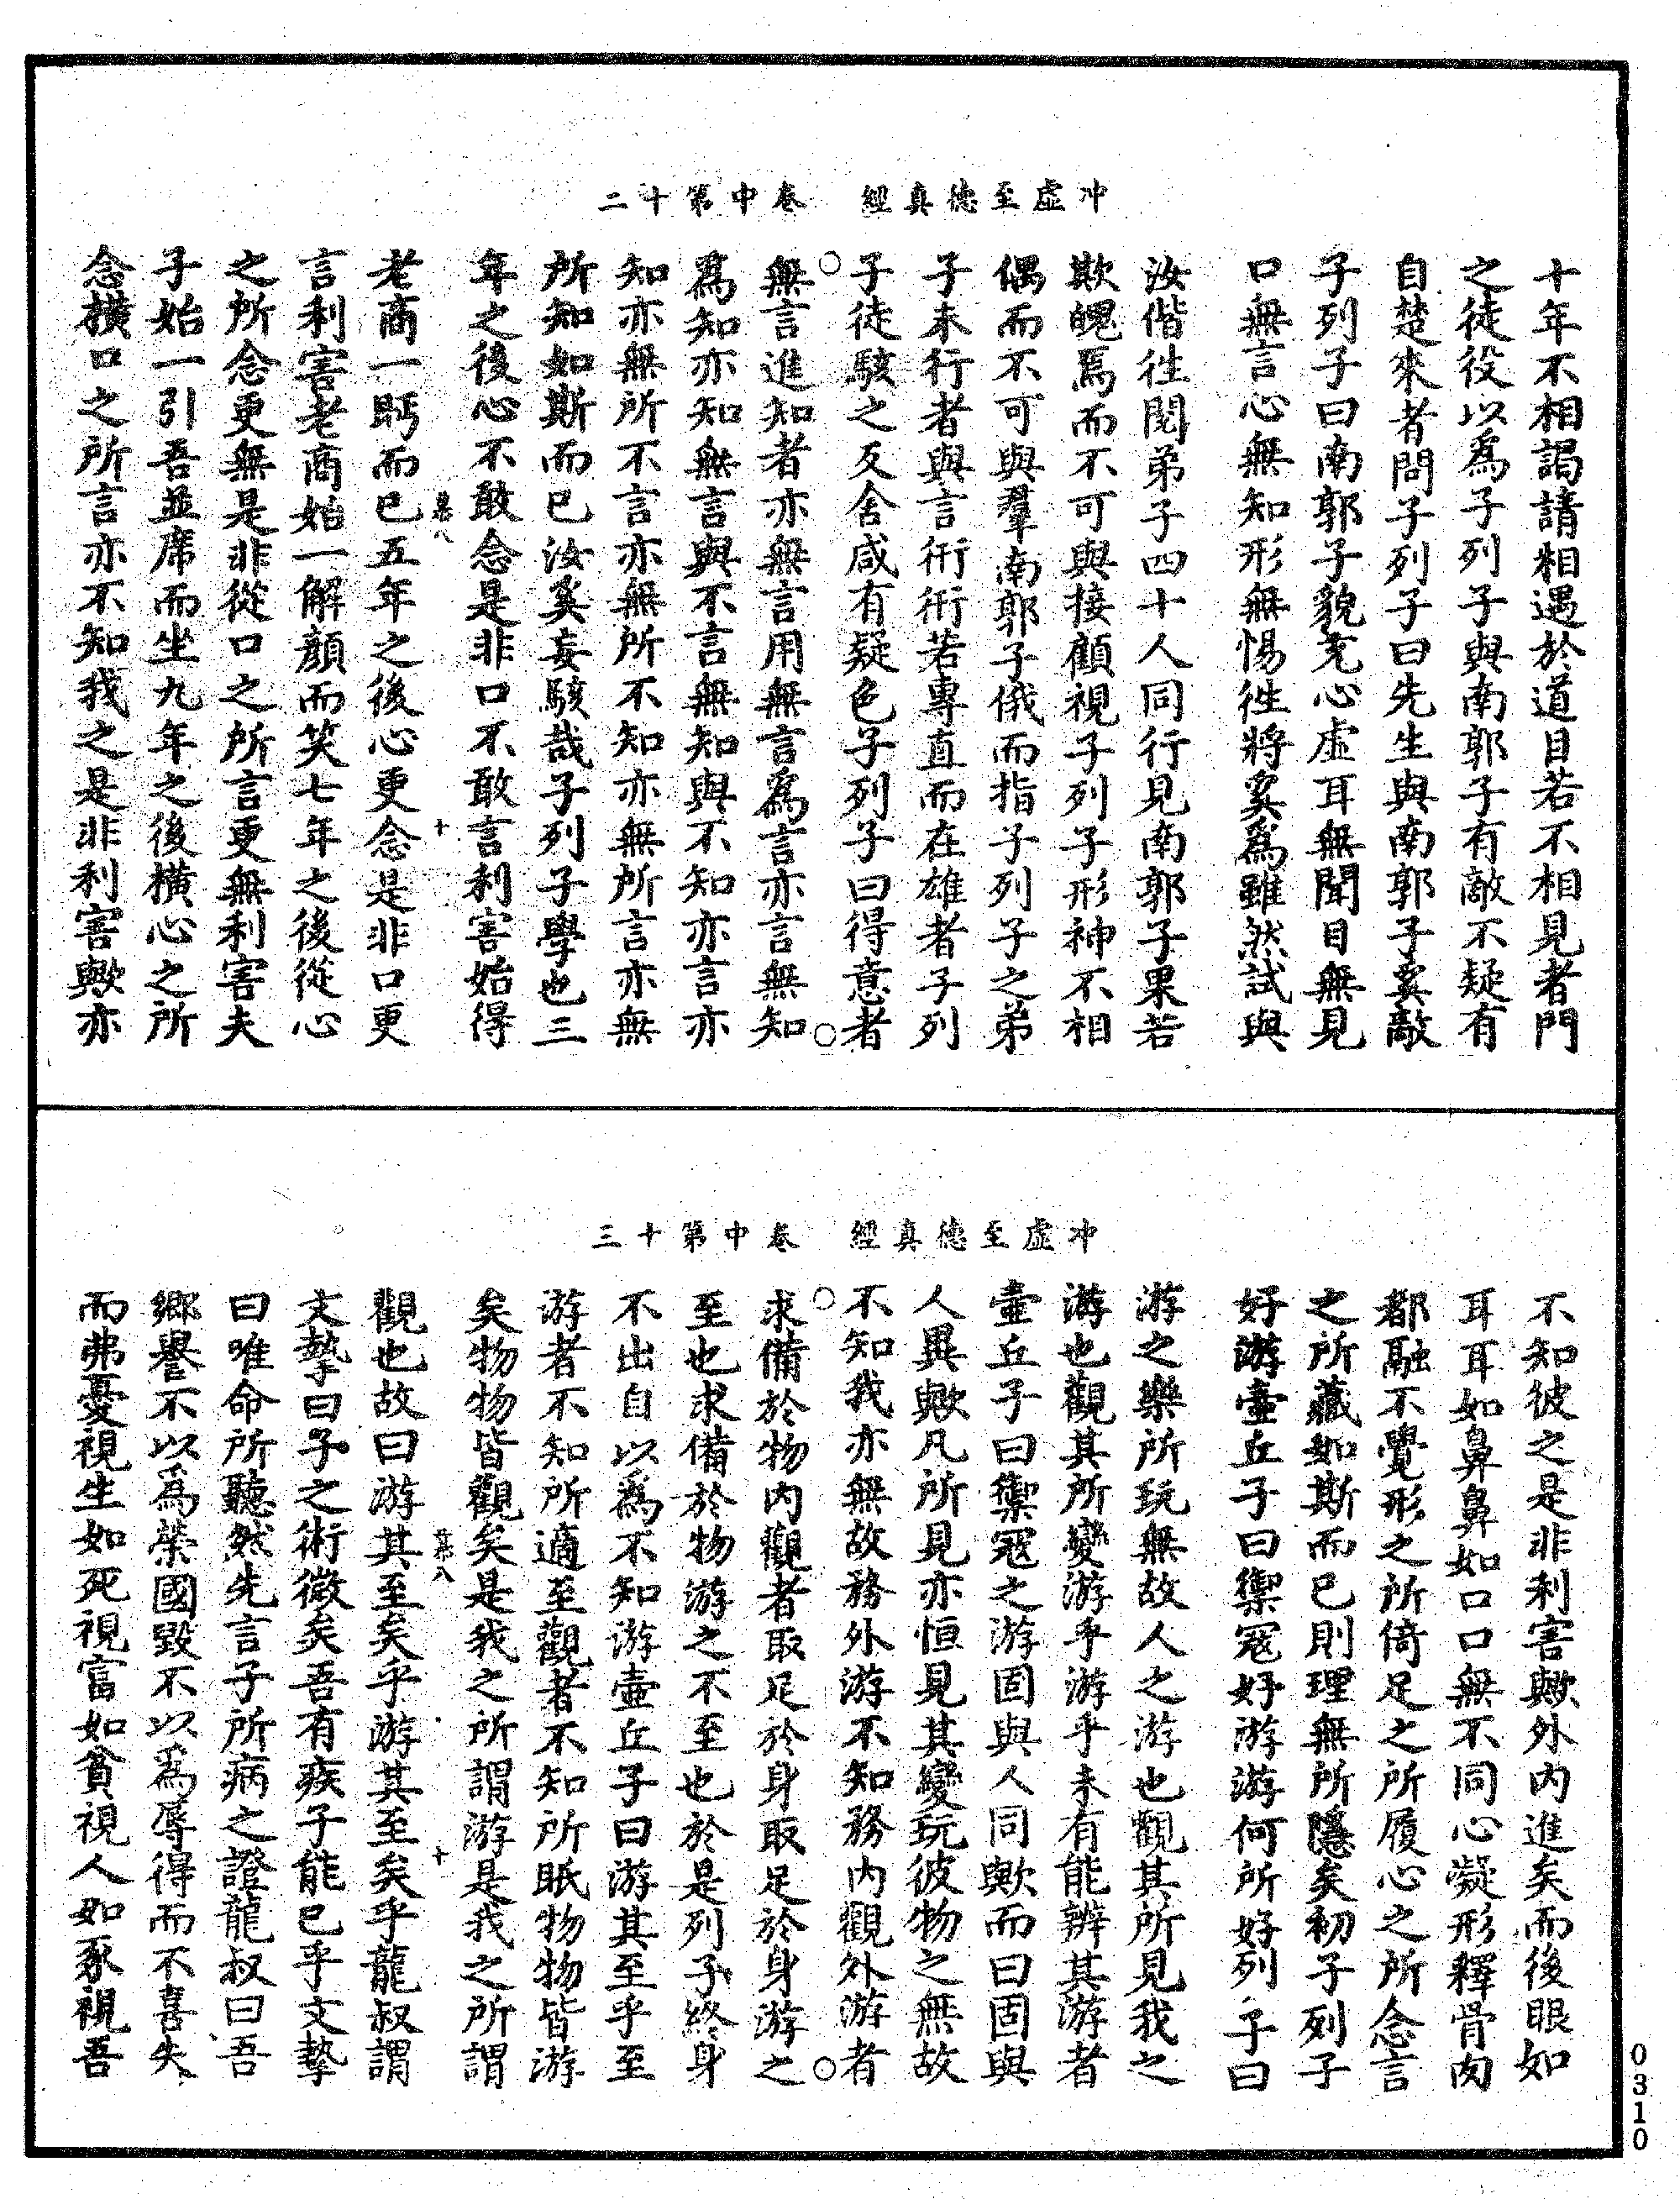 冲虛至德真經 卷中第十二
十年不相謁請相遇於道目若不相見者門
之徒役以為子列子與南郭子有敵不疑有
自楚來者問子列子曰先生與南郭子奚敵
子列子曰南郭子貌充心虛耳無聞目無見
口無言心無知形無惕往將奚為雖然試與
汝偕往閱弟子四十人同行見南郭子果若
欺魄焉而不可與接顧視子列子形神不相
偶而不可與羣南郭子俄而指子列子之弟
子末行者與言衎衎若專直而在雄者子列
子徒駭之反舍咸有疑色子列子曰得意者
無言進知者亦無言用無言為言亦言無知
為知亦知無言與不言無知與不知亦言亦
知亦無所不言亦無所不知亦無所言亦無
所知如斯而已汝奚妄駭哉子列子學也三
年之後心不敢念是非口不敢言利害始得
老商一眄而已五年之後心更念是非口更
言利害老商始一解顏而笑七年之後從心
之所念更無是非從口之所言更無利害夫
子始一引吾並席而坐九年之後橫心之所
念橫口之所言亦不知我之是非利害歟亦
冲虛至德真經 卷中第十三
不知彼之是非利害歟外內進矣而後眼如
耳耳如鼻鼻如口口無不同心凝形釋骨肉
都融不覺形之所倚足之所履心之所念言
之所藏如斯而已則理無所隱矣初子列子
好游壺丘子曰禦寇好游游何所好列子曰
游之樂所玩無故人之游也觀其所見我之
游也觀其所變游乎游乎未有能辨其游者
壺丘子曰禦寇之游固與人同歟而曰固與
人異歟凡所見亦恒見其變玩彼物之無故
不知我亦無故務外游不知務內觀外游者
求備於物內觀者取足於身取足於身游之
至也求備於物游之不至也於是列子終身
不出自以為不知游壺丘子曰游其至乎至
游者不知所適至觀者不知所眂物物皆游
矣物物皆觀矣是我之所謂游是我之所謂
觀也故曰游其至矣乎游其至矣乎龍叔謂
文摯曰子之術微矣吾有疾子能已乎文摯
曰唯命所聽然先言子所病之證龍叔曰吾
鄉譽不以為榮國毀不以為辱得而不喜失
而弗憂視生如死視富如貧視人如豕視吾
0310